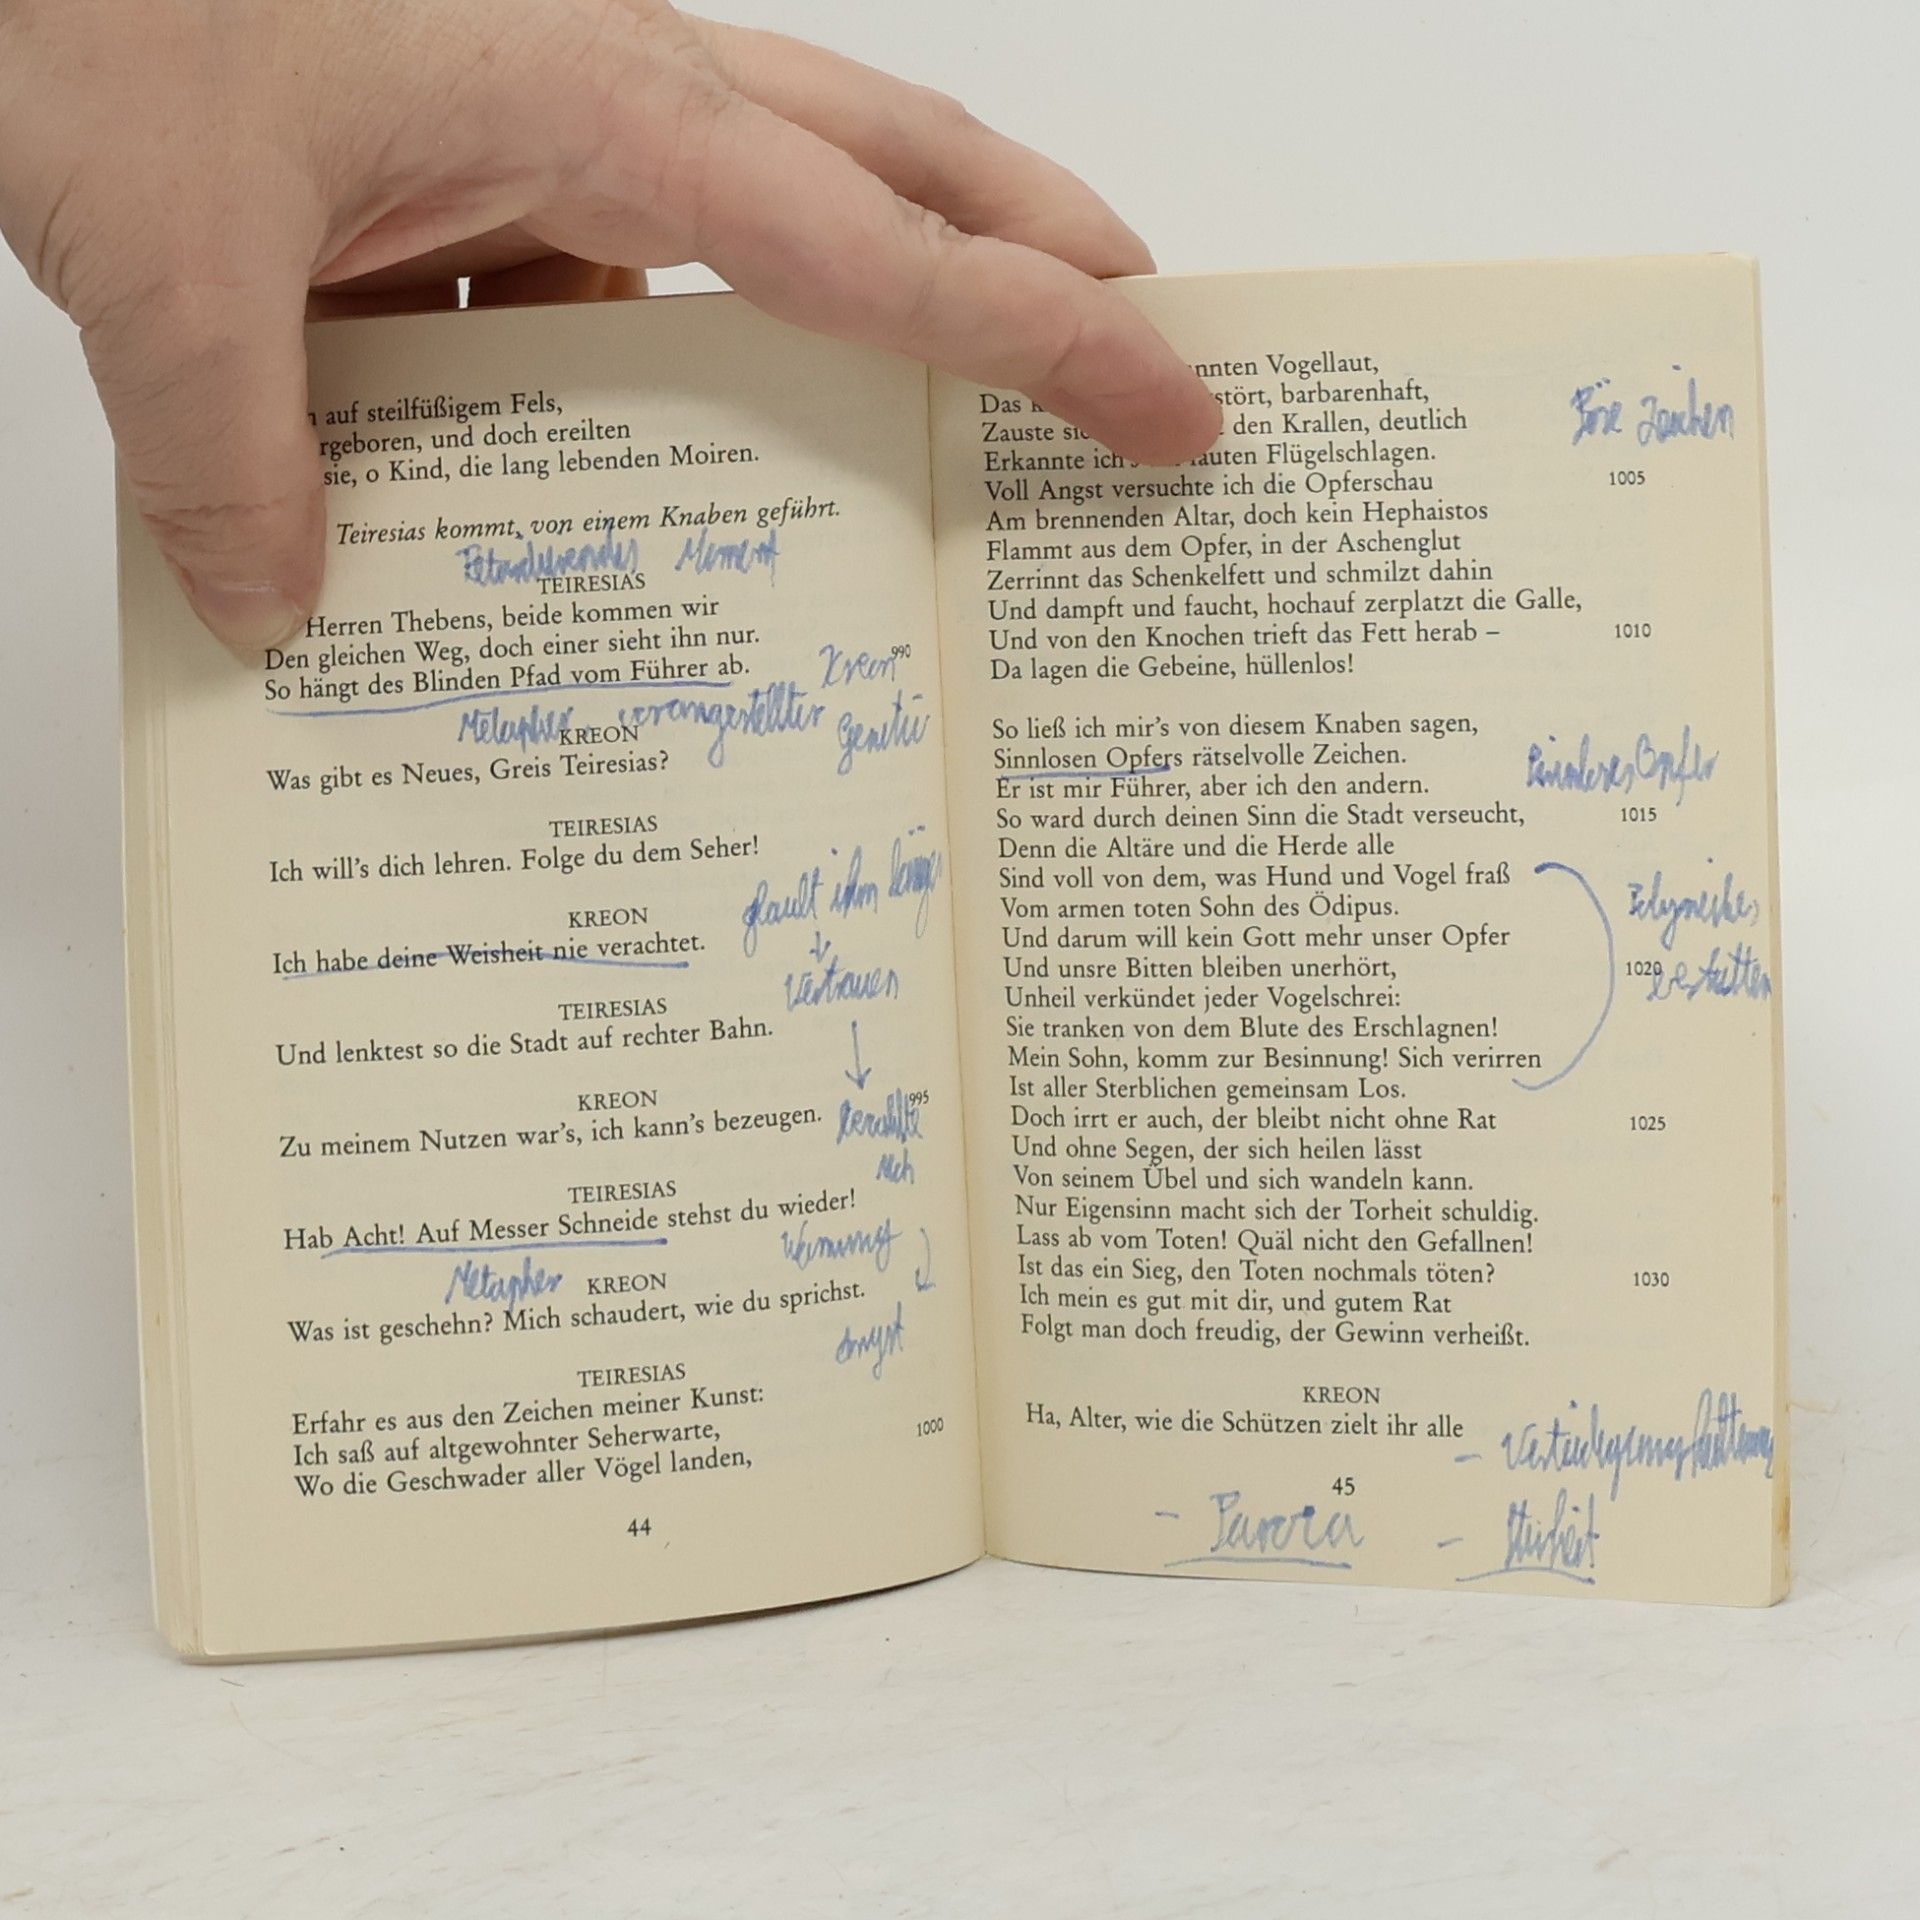 auf steilfüßigem Fels,
und doch ereilten
sie, o Kind, die lang lebenden Moiren.
Teiresias kommt, von einem Knaben geführt.
Retardierendes Moment
TEIRESIAS
Herren Thebens, beide kommen wir
Den gleichen Weg, doch einer sieht ihn nur.
So hängt des Blinden Pfad vom Führer ab.
990
Kreon
Metapher, vorangestellter Genetiv
KREON
Was gibt es Neues, Greis Teiresias?
TEIRESIAS
Ich will's dich lehren. Folge du dem Seher!
glaubt ihm
KREON
Ich habe deine Weisheit nie verachtet.
Vertrauen
TEIRESIAS
Und lenktest so die Stadt auf rechter Bahn.
KREON
Zu meinem Nutzen war's, ich kann's bezeugen.
995
TEIRESIAS
Hab Acht! Auf Messer Schneide stehst du wieder!
Warnung
Metapher
KREON
Was ist geschehn? Mich schaudert, wie du sprichst.
Angst
TEIRESIAS
Erfahr es aus den Zeichen meiner Kunst:
Ich saß auf altgewohnter Seherwarte,
1000
Wo die Geschwader aller Vögel landen,
44
Vogellaut,
Das barbarenhaft,
Böse Zeichen
Zauste den Krallen, deutlich
Erkannte ich lauten Flügelschlagen.
Voll Angst versuchte ich die Opferschau
1005
Am brennenden Altar, doch kein Hephaistos
Flammt aus dem Opfer, in der Aschenglut
Zerrinnt das Schenkelfett und schmilzt dahin
Und dampft und faucht, hochauf zerplatzt die Galle,
Und von den Knochen trieft das Fett herab –
1010
Da lagen die Gebeine, hüllenlos!
So ließ ich mir's von diesem Knaben sagen,
Sinnlosen Opfers rätselvolle Zeichen.
Opfer
Er ist mir Führer, aber ich den andern.
So ward durch deinen Sinn die Stadt verseucht,
1015
Denn die Altäre und die Herde alle
Sind voll von dem, was Hund und Vogel fraß
Vom armen toten Sohn des Ödipus.
Polyneikes
Und darum will kein Gott mehr unser Opfer
Und unsre Bitten bleiben unerhört,
1020
bestatten
Unheil verkündet jeder Vogelschrei:
Sie tranken von dem Blute des Erschlagnen!
Mein Sohn, komm zur Besinnung! Sich verirren
Ist aller Sterblichen gemeinsam Los.
Doch irrt er auch, der bleibt nicht ohne Rat
1025
Und ohne Segen, der sich heilen lässt
Von seinem Übel und sich wandeln kann.
Nur Eigensinn macht sich der Torheit schuldig.
Lass ab vom Toten! Quäl nicht den Gefallnen!
Ist das ein Sieg, den Toten nochmals töten?
1030
Ich mein es gut mit dir, und gutem Rat
Folgt man doch freudig, der Gewinn verheißt.
KREON
Ha, Alter, wie die Schützen zielt ihr alle
45